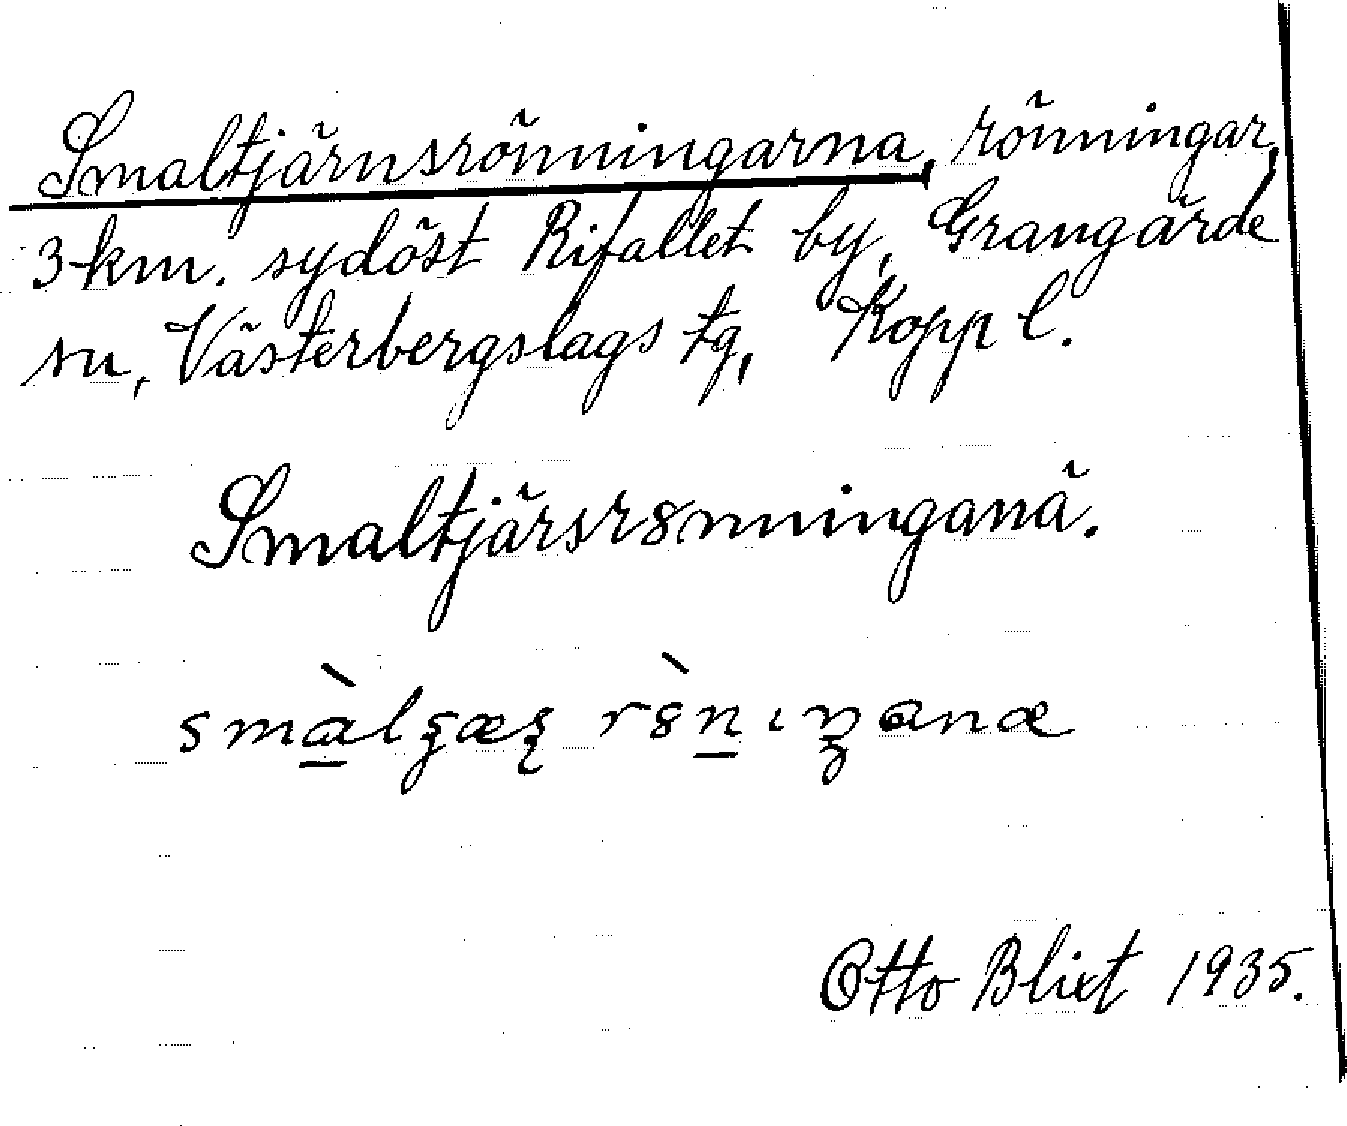 Smaltjärnsrönningarna, rönningar,
3 km. sydöst Rifallet by, Grangärde
sn, Västerbergslags tg, Kopp l.
Smaltjärsr8nninganä.
Otto Blixt 1935.